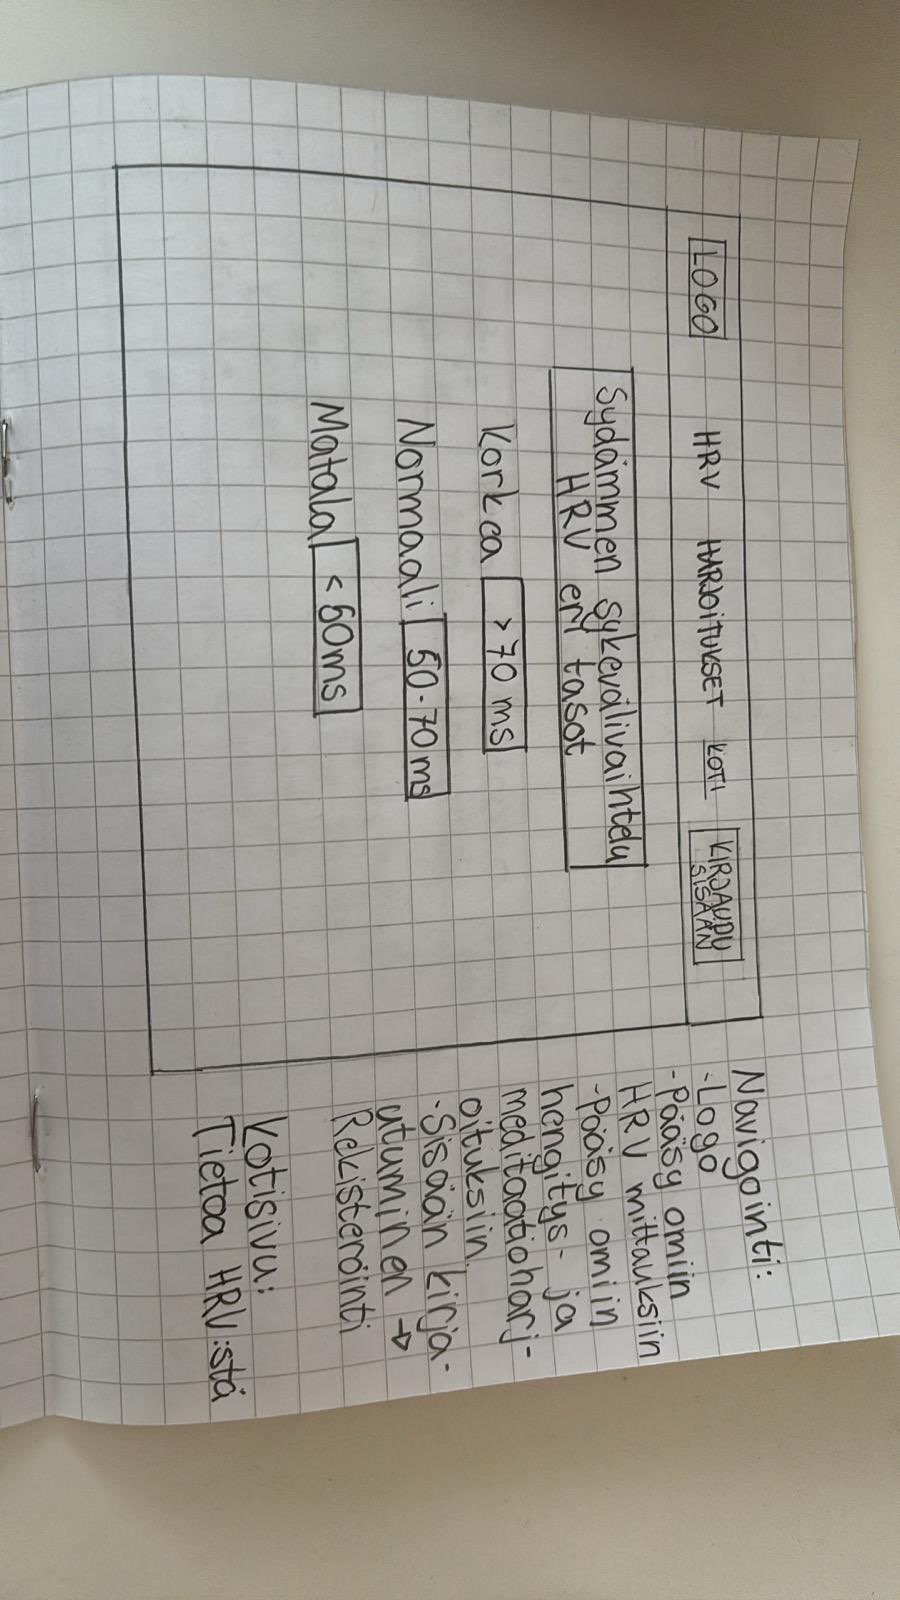 LOGO HRV HARJOITUKSET KOTI KIRJAUDU
SISÄÄN
Sydämmen sykevälivaihtelu
HRV eri tasot
Korkea > 70 ms
Normaali 50-70 ms
Matala < 50ms
Navigointi:
-Logo
-Pääsy omiin
HRV mittauksiin
-Pääsy omiin
hengitys- ja
meditaatioharj-
oituksiin.
-Sisään kirja-
utuminen →
Rekisteröinti
Kotisivu:
Tietoa HRV:stä